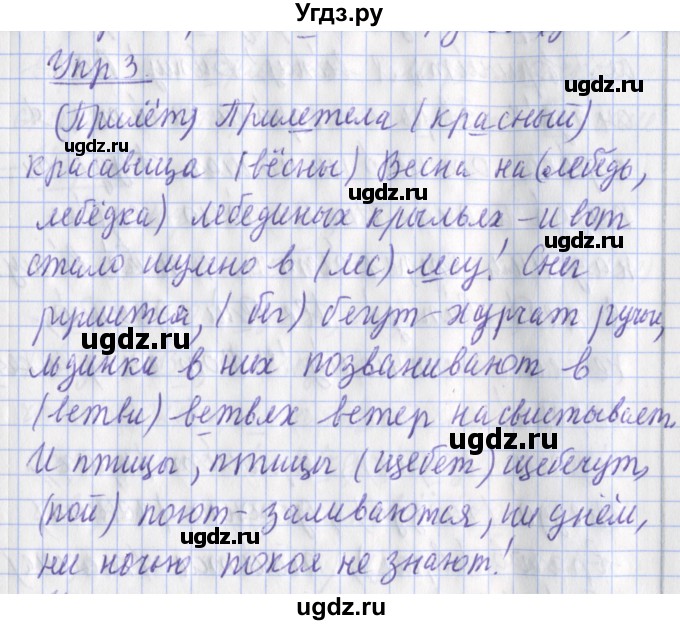 Угдз.ру
Упр 3.
(Прилёт) Прилетела (красный)
красавица (вёсны) Весна на (лебедь,
лебёдка) лебединых крыльях, – и вот
стало шумно в (лес) лесу! Снег
рушится, (бег) бегут – журчат ручьи,
льдинки в них позванивают в
(ветви) ветвях ветер насвистывает.
И птицы, птицы (щебет) щебечут,
(пой) поют – заливаются, ни днём,
ни ночью покоя не знают!
ugdz.ru
ugdz.ru
ugdz.ru
ugdz.ru
ugdz.ru
ugdz.ru
ugdz.ru
ugdz.ru
ugdz.ru
ugdz.ru